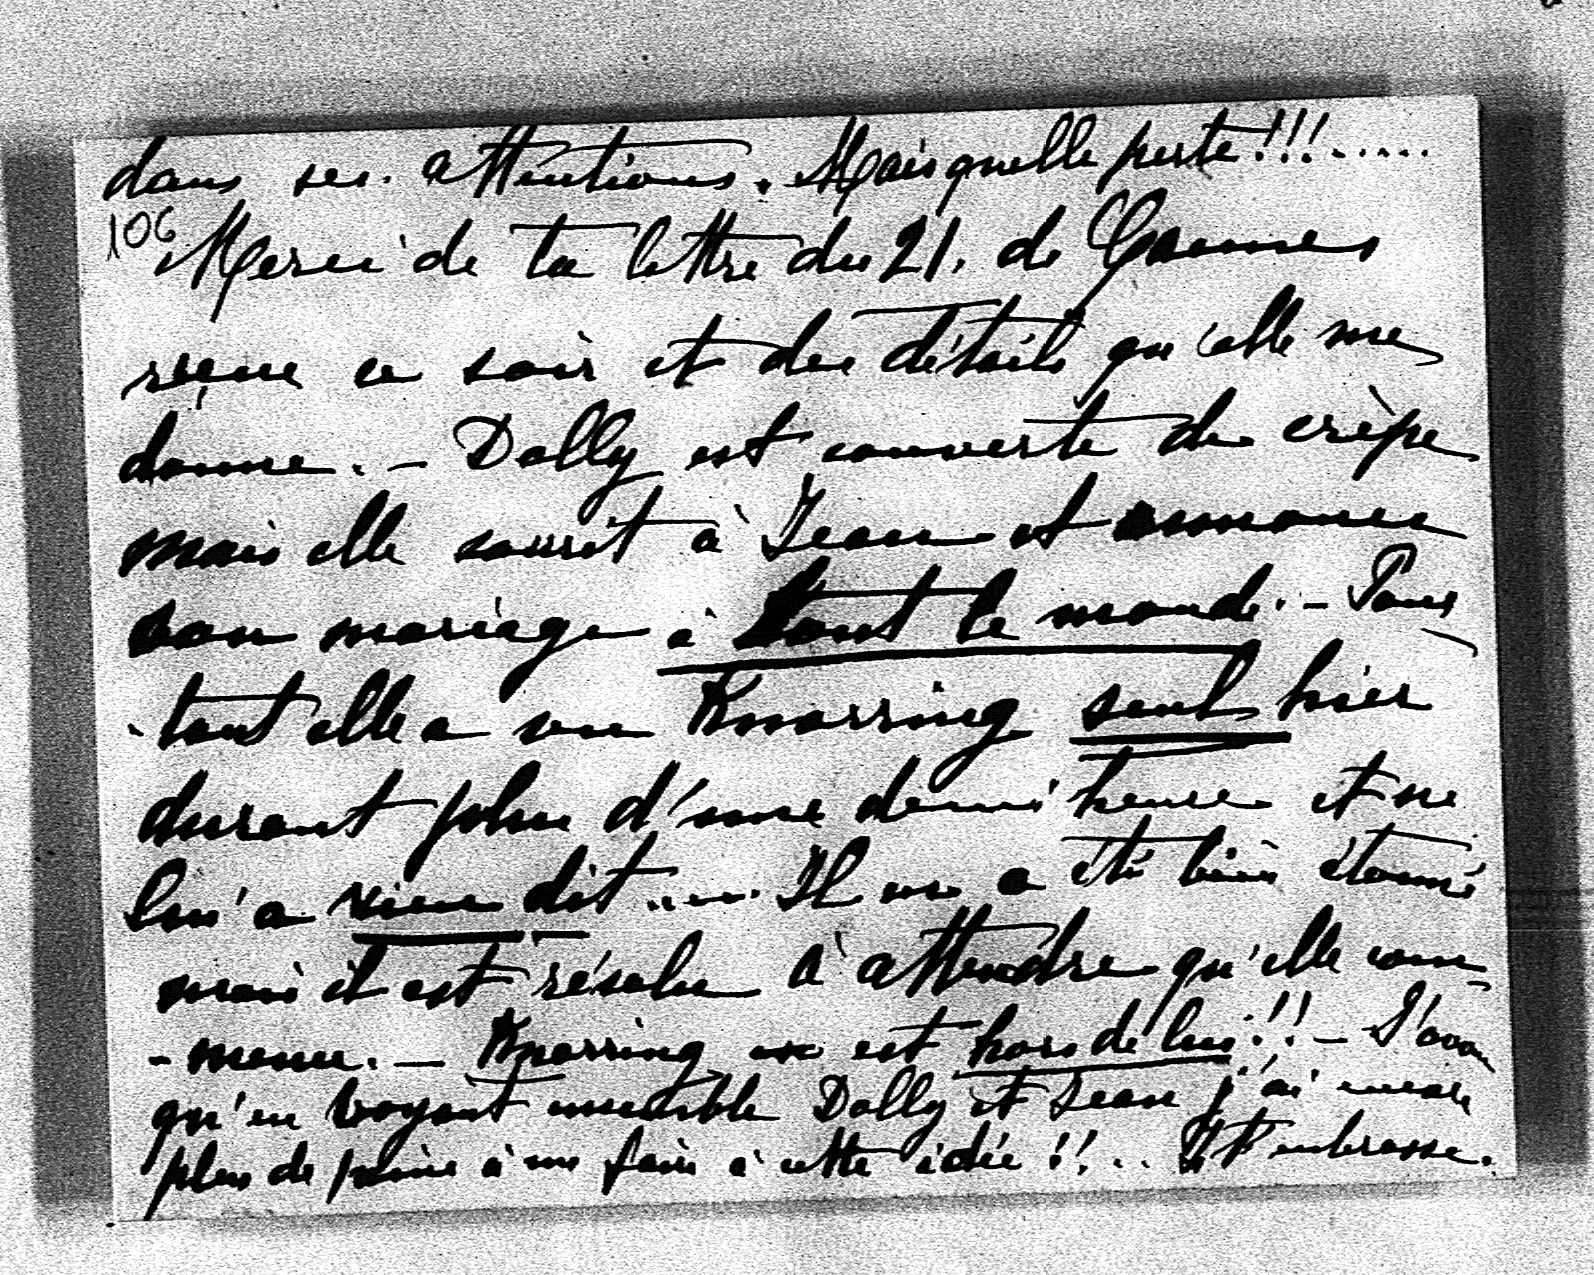 dans ses attentions. Mais quelle perte!!!.....
106
Merci de ta lettre du 21. de Cannes
reçue ce soir et des détails qu'elle me
donne. – Dolly est couverte de crêpe
mais elle sourit à Jean et annonce
son mariage à tout le monde. – Pour
tant elle a vu Knorring seul hier
durant plus d'une demi heure et ne
lui a rien dit..... Il en a été bien étonné
mais il est résolu à attendre qu'elle com
- mence. – Knorring en est hors de lui!! – J'avoue
qu'en voyant ensemble Dolly et Jean j'ai encore
plus de peine à me faire à cette idée!!... Je t'embrasse.